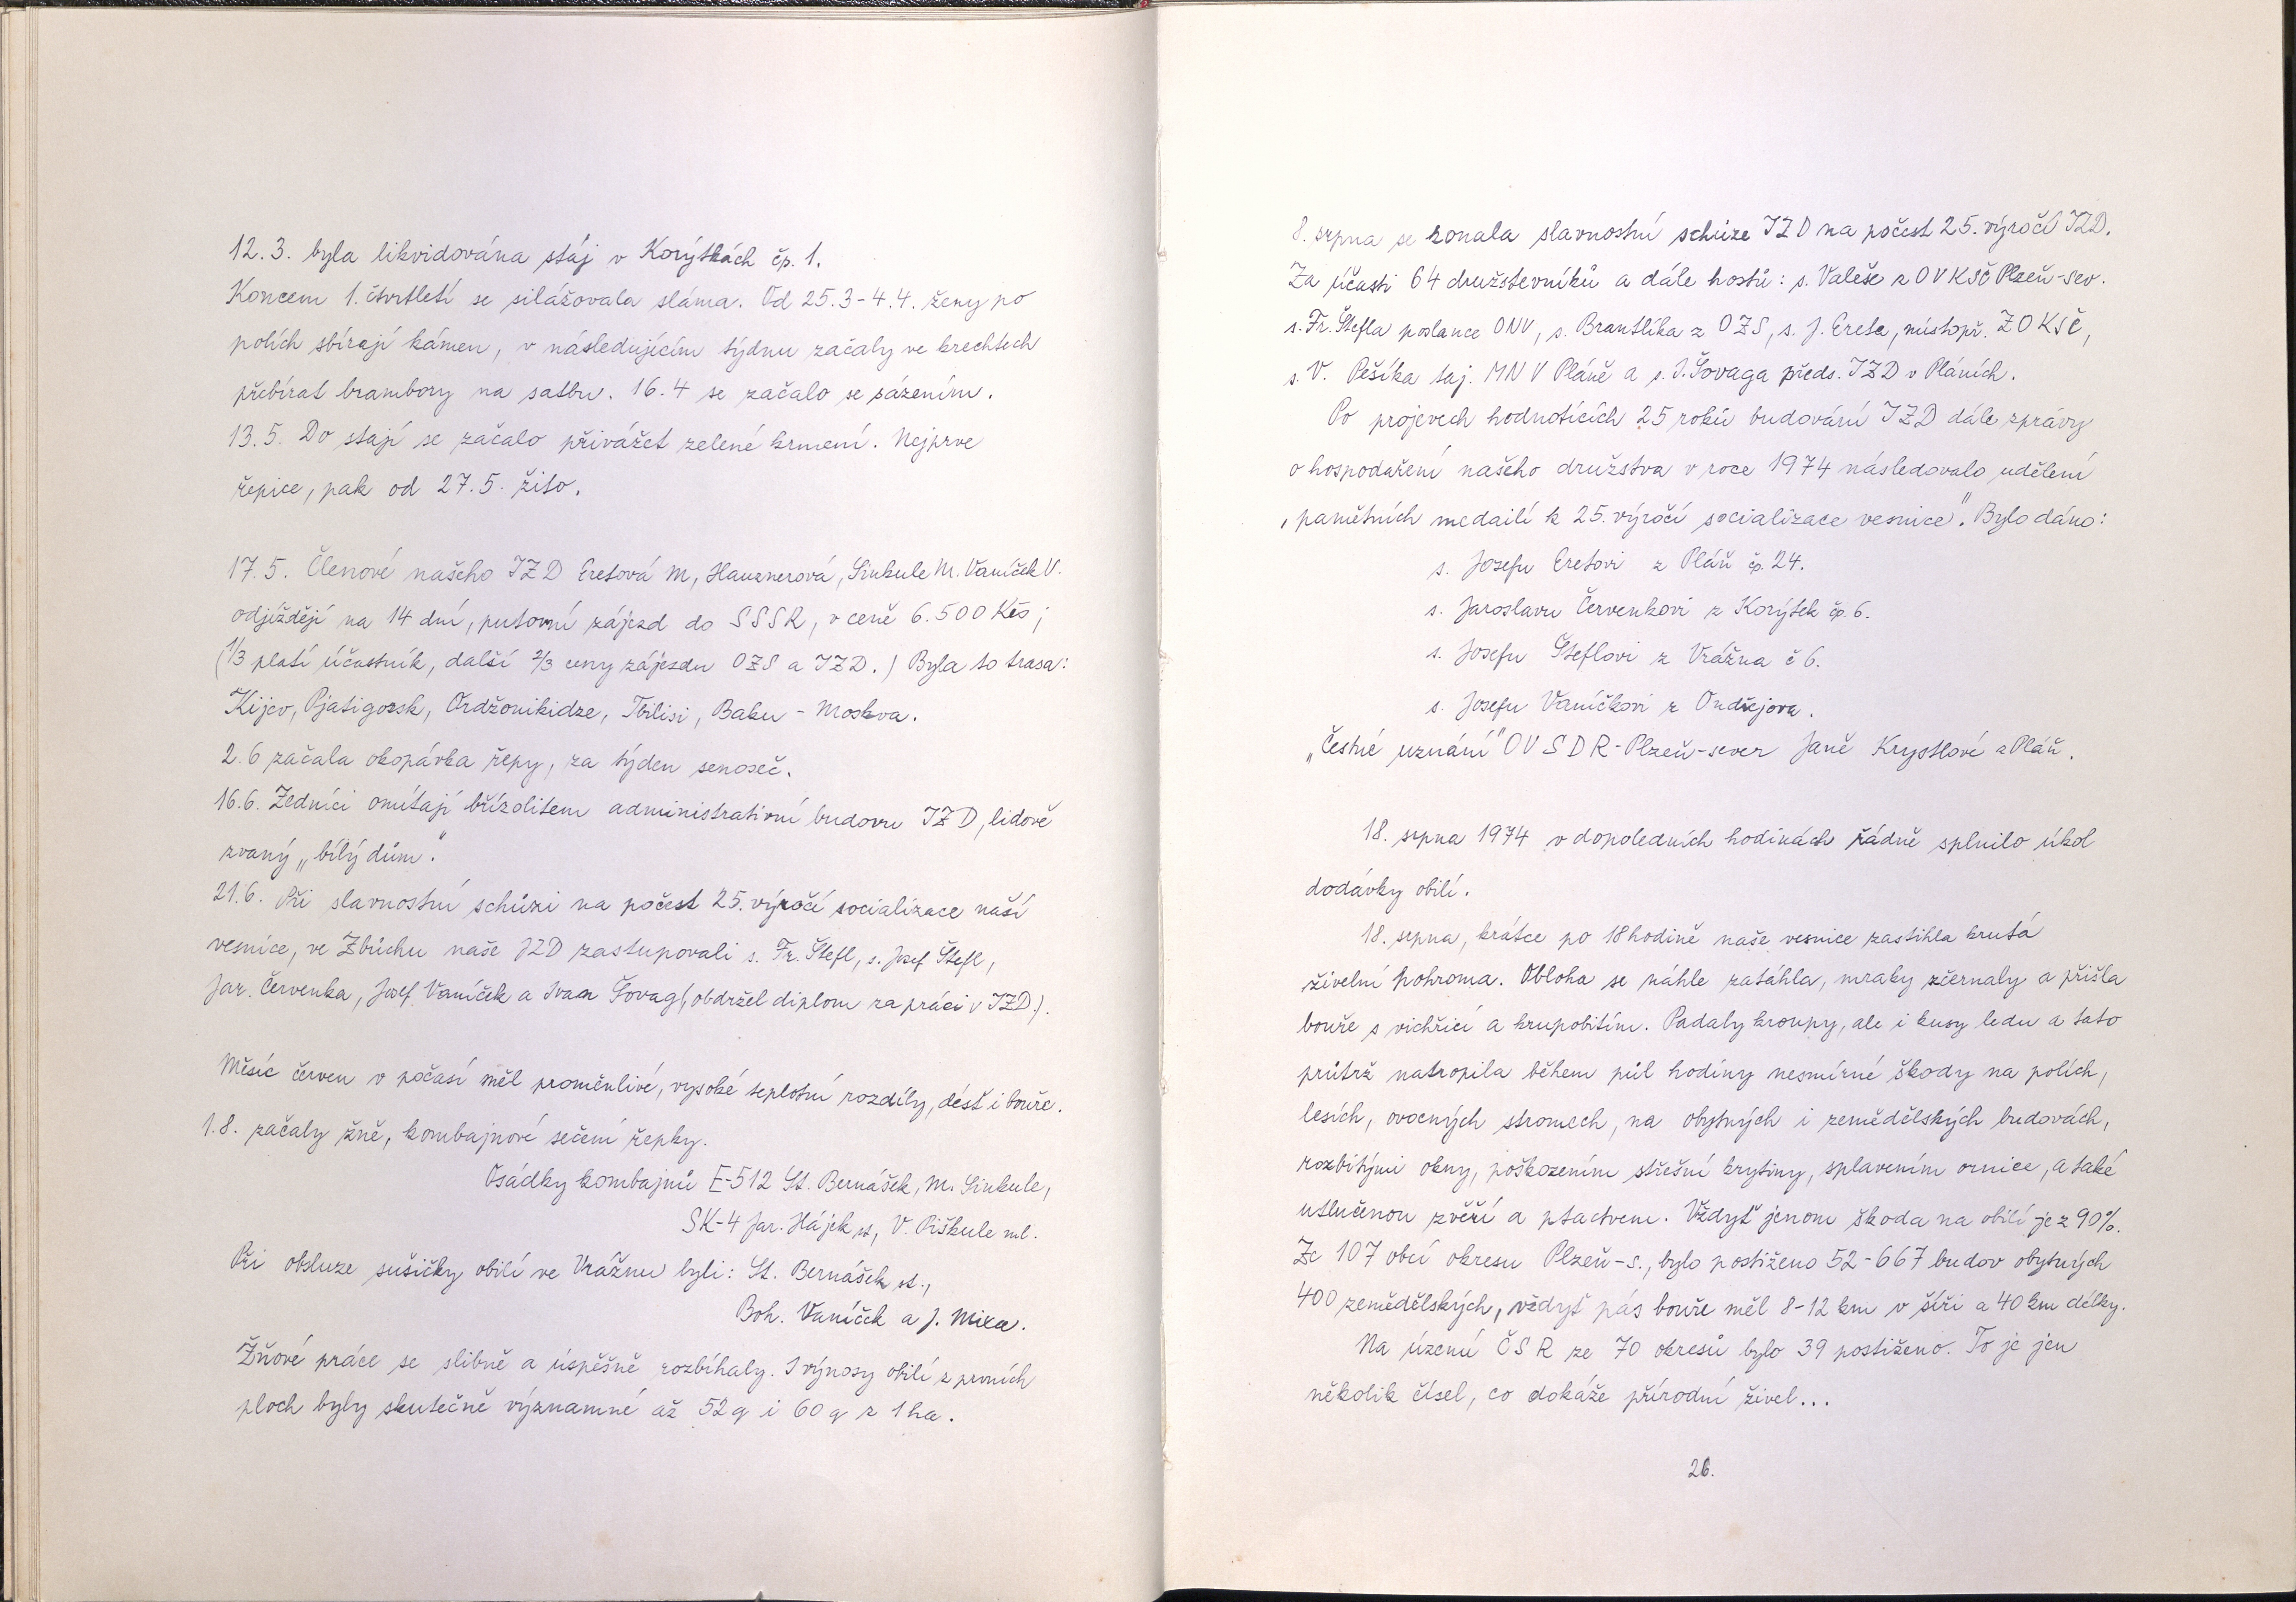 12.3. byla likvidována stáj v Korýtkách čp. 1.
Koncem 1. čtvrtletí se silážovala sláma. Od 25.3-4.4. ženy po
polích sbírají kámen, v následujícím týdnu začaly ve krechtech
přebírat brambory na satbu. 16.4 se začalo se sázením.
13.5. Do stájí se začalo přivážet zelené krmení. Nejprve
řepice, pak od 27.5. žito.
17.5. Členové našeho JZD Eretová M, Hausnerová, Sinkule M. Vaníček V.
odjíždějí na 14 dní, putovní zájezd do SSSR, v ceně 6.500 Kčs;
(1/3 platí účastník, další 2/3 ceny zájezdu OZS a JZD.) Byla to trasa:
Kijev, Pjatigorsk, Ordžonikidze, Tbilisi, Baku - Moskva.
2.6 začala okopávka řepy, za týden senoseč.
16.6. Zedníci omítají břízolitem administrativní budovu JZD, lidově
zvaný „bílý dům".
21.6. Při slavnostní schůzi na počest 25. výročí socializace naší
vesnice, ve Zbůchu naše JZD zastupovali s. Fr. Štefl, s. Josef Štefl,
Jar. Červenka, Josef Vaníček a Ivan Šovag (obdržel diplom za práci v JZD).
Měsíc červen v počasí měl proměnlivé, vysoké teplotní rozdíly, déšť i bouře.
1.8. začaly žně, kombajnové sečení řepky.
Osádky kombajnů E-512 St. Bernášek, M. Sinkule,
SK-4 Jar. Hájek st, V. Piškule ml.
Při obsluze sušičky obilí ve Vrážnu byli: St. Bernášek st.,
Boh. Vaníček a J. Mixa.
Žňové práce se slibně a úspěšně rozbíhaly. I výnosy obilí z prvních
ploch byly skutečně významné až 52 q i 60 q z 1 ha.
8. srpna se konala slavnostní schůze JZD na počest 25. výročí JZD.
Za účasti 64 družstevníků a dále hostů: s. Valeše z OV KSČ Plzeň-sev.
s. Fr. Štefla poslance ONV, s. Brantlíka z OZS, s. J. Ereta, místopř. ZO KSČ,
s. V. Pešíka taj. MNV Pláně a s. I. Šovaga předs. JZD v Pláních.
Po projevech hodnotících 25 roků budování JZD dále zprávy
o hospodaření našeho družstva v roce 1974 následovalo udělení
„pamětních medailí k 25. výročí socializace vesnice". Bylo dáno:
s. Josefu Eretovi z Pláň čp. 24.
s. Jaroslavu Červenkovi z Korýtek čp. 6.
s. Josefu Šteflovi z Vrážna č 6.
s. Josefu Vaníčkovi z Ondřejova.
„Čestné uznání" OV SDR-Plzeň-sever Janě Krystlové z Pláň.
18. srpna 1974 v dopoledních hodinách řádně splnilo úkol
dodávky obilí.
18. srpna, krátce po 18 hodině naše vesnice zastihla krutá
živelní pohroma. Obloha se náhle zatáhla, mraky zčernaly a přišla
bouře s vichřicí a krupobitím. Padaly kroupy, ale i kusy ledu a tato
průtrž natropila během půl hodiny nesmírné škody na polích,
lesích, ovocných stromech, na obytných i zemědělských budovách,
rozbitými okny, poškozením střešní krytiny, splavením ornice, a také
utlučenou zvěří a ptactvem. Vždyť jenom škoda na obilí je z 90%.
Ze 107 obcí okresu Plzeň-s., bylo postiženo 52-667 budov obytných
400 zemědělských, vždyť pás bouře měl 8-12 km v šíři a 40 km délky.
Na území ČSR ze 70 okresů bylo 39 postiženo. To je jen
několik čísel, co dokáže přírodní živel...
26.